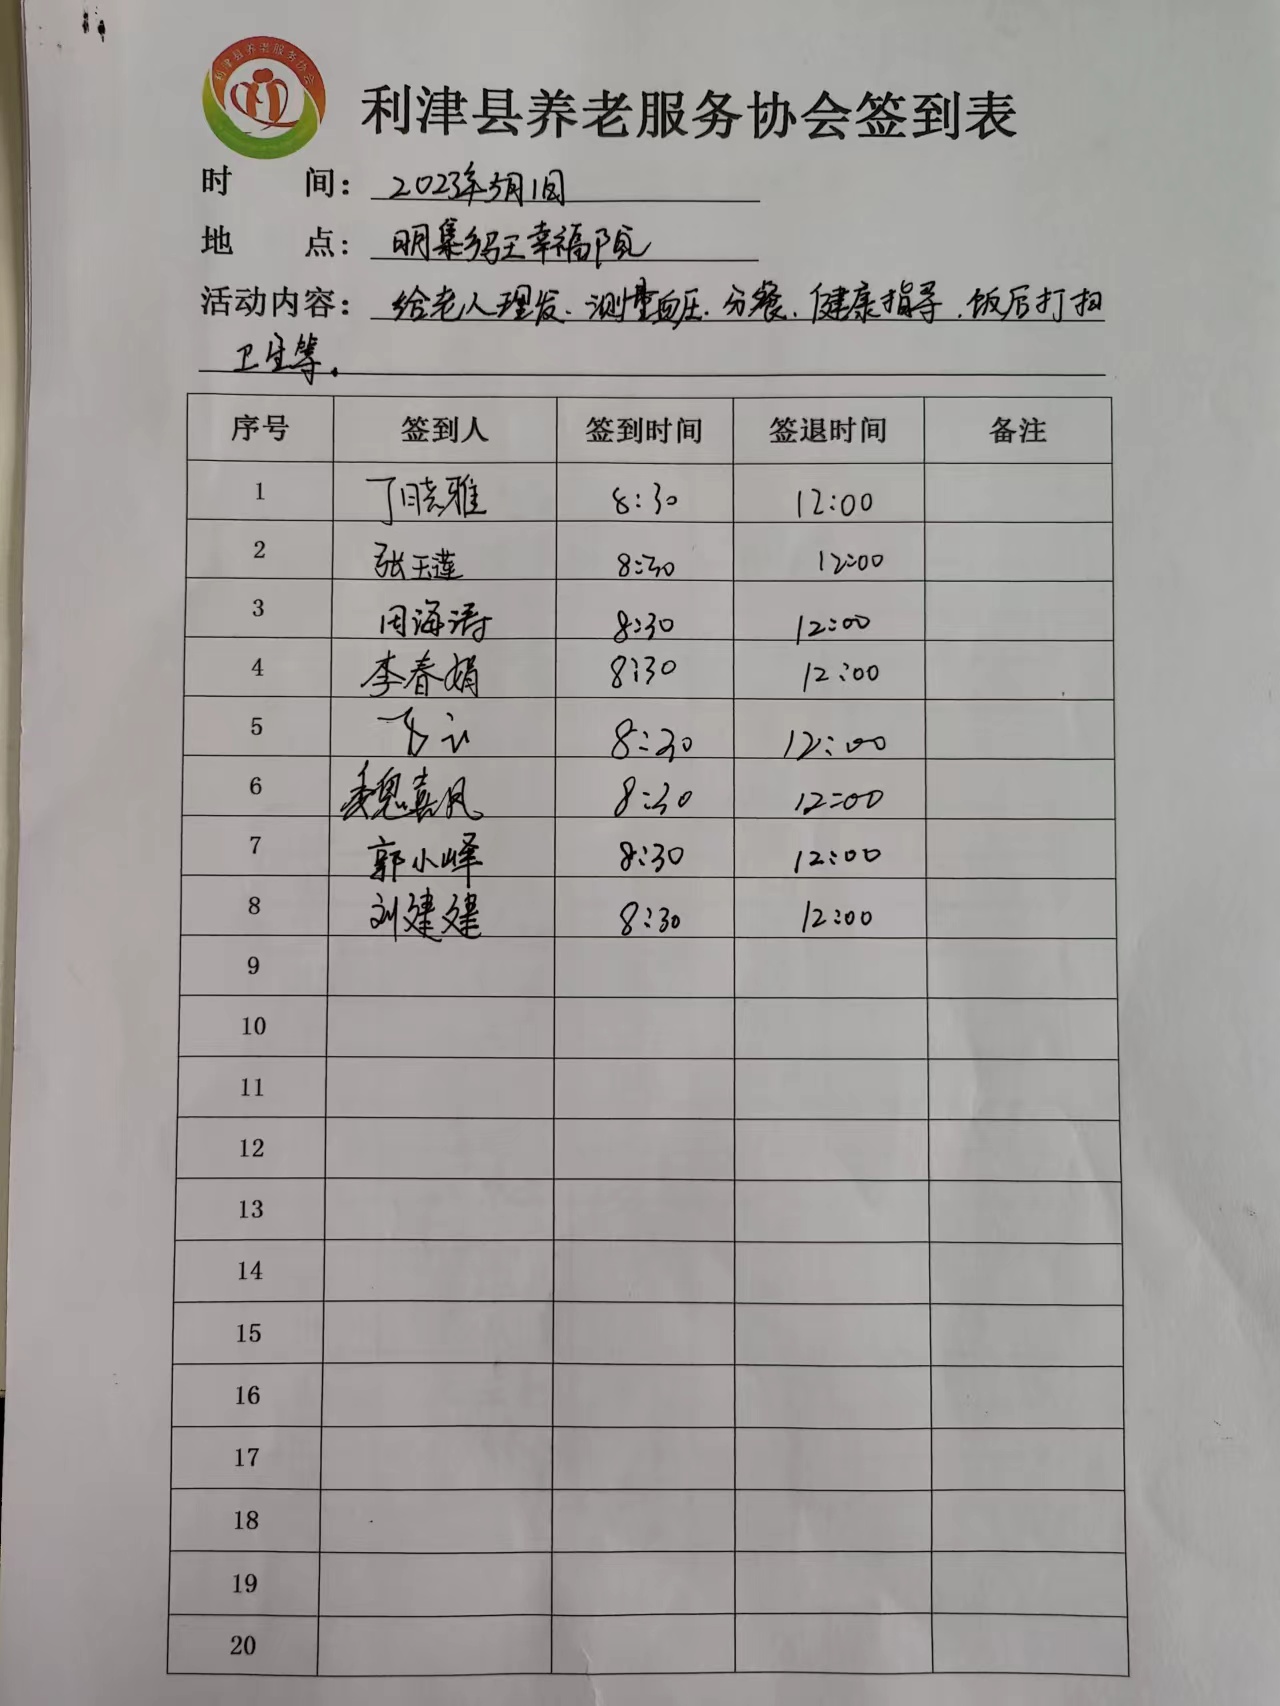 利津县养老服务协会
利津县养老服务协会签到表
时 间： 2023年5月1日
地 点： 明集乡冯王幸福院
活动内容： 给老人理发、测量血压、分餐、健康指导、饭后打扫
卫生等。
序号 签到人 签到时间 签退时间 备注
1 丁晓雅 8:30 12:00
2 张玉莲 8:30 12:00
3 周海涛 8:30 12:00
4 李春娟 8:30 12:00
5 8:30 12:00
6 魏嘉凤 8:30 12:00
7 郭小峰 8:30 12:00
8 刘建建 8:30 12:00
9
10
11
12
13
14
15
16
17
18
19
20